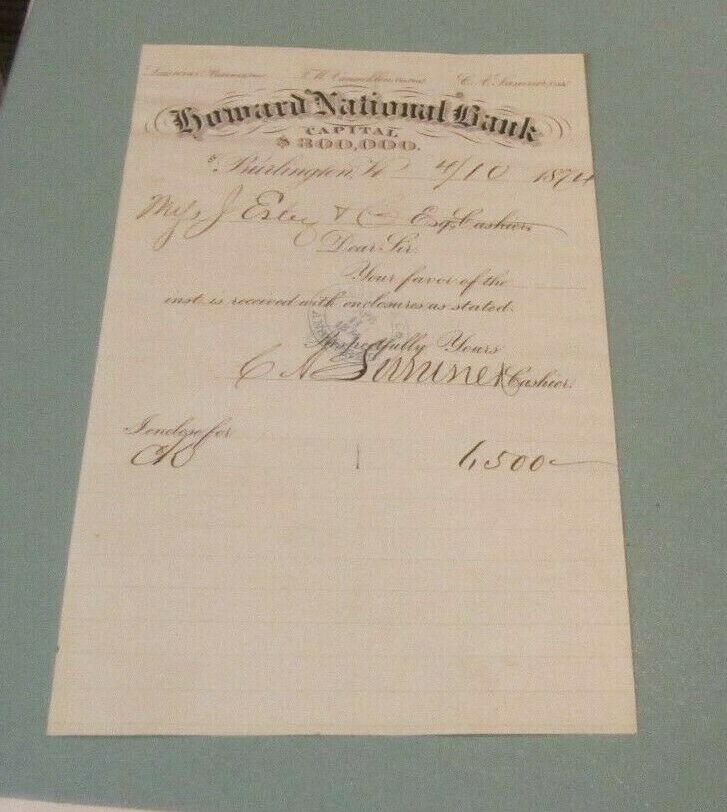 C. A. Sumner, Cash.
Howard National Bank
CAPITAL
$300,000.
Burlington, Vt. 4/10 1874
J Estey & Co Esq. Cashier
Dear Sir
Your favor of the
inst. is received with enclosures as stated.
Respectfully Yours
C A Sumner Cashier.
I enclose for
6,500